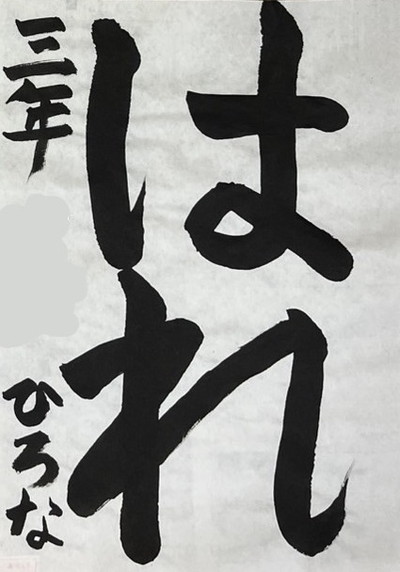 はれ
三年
ひろな